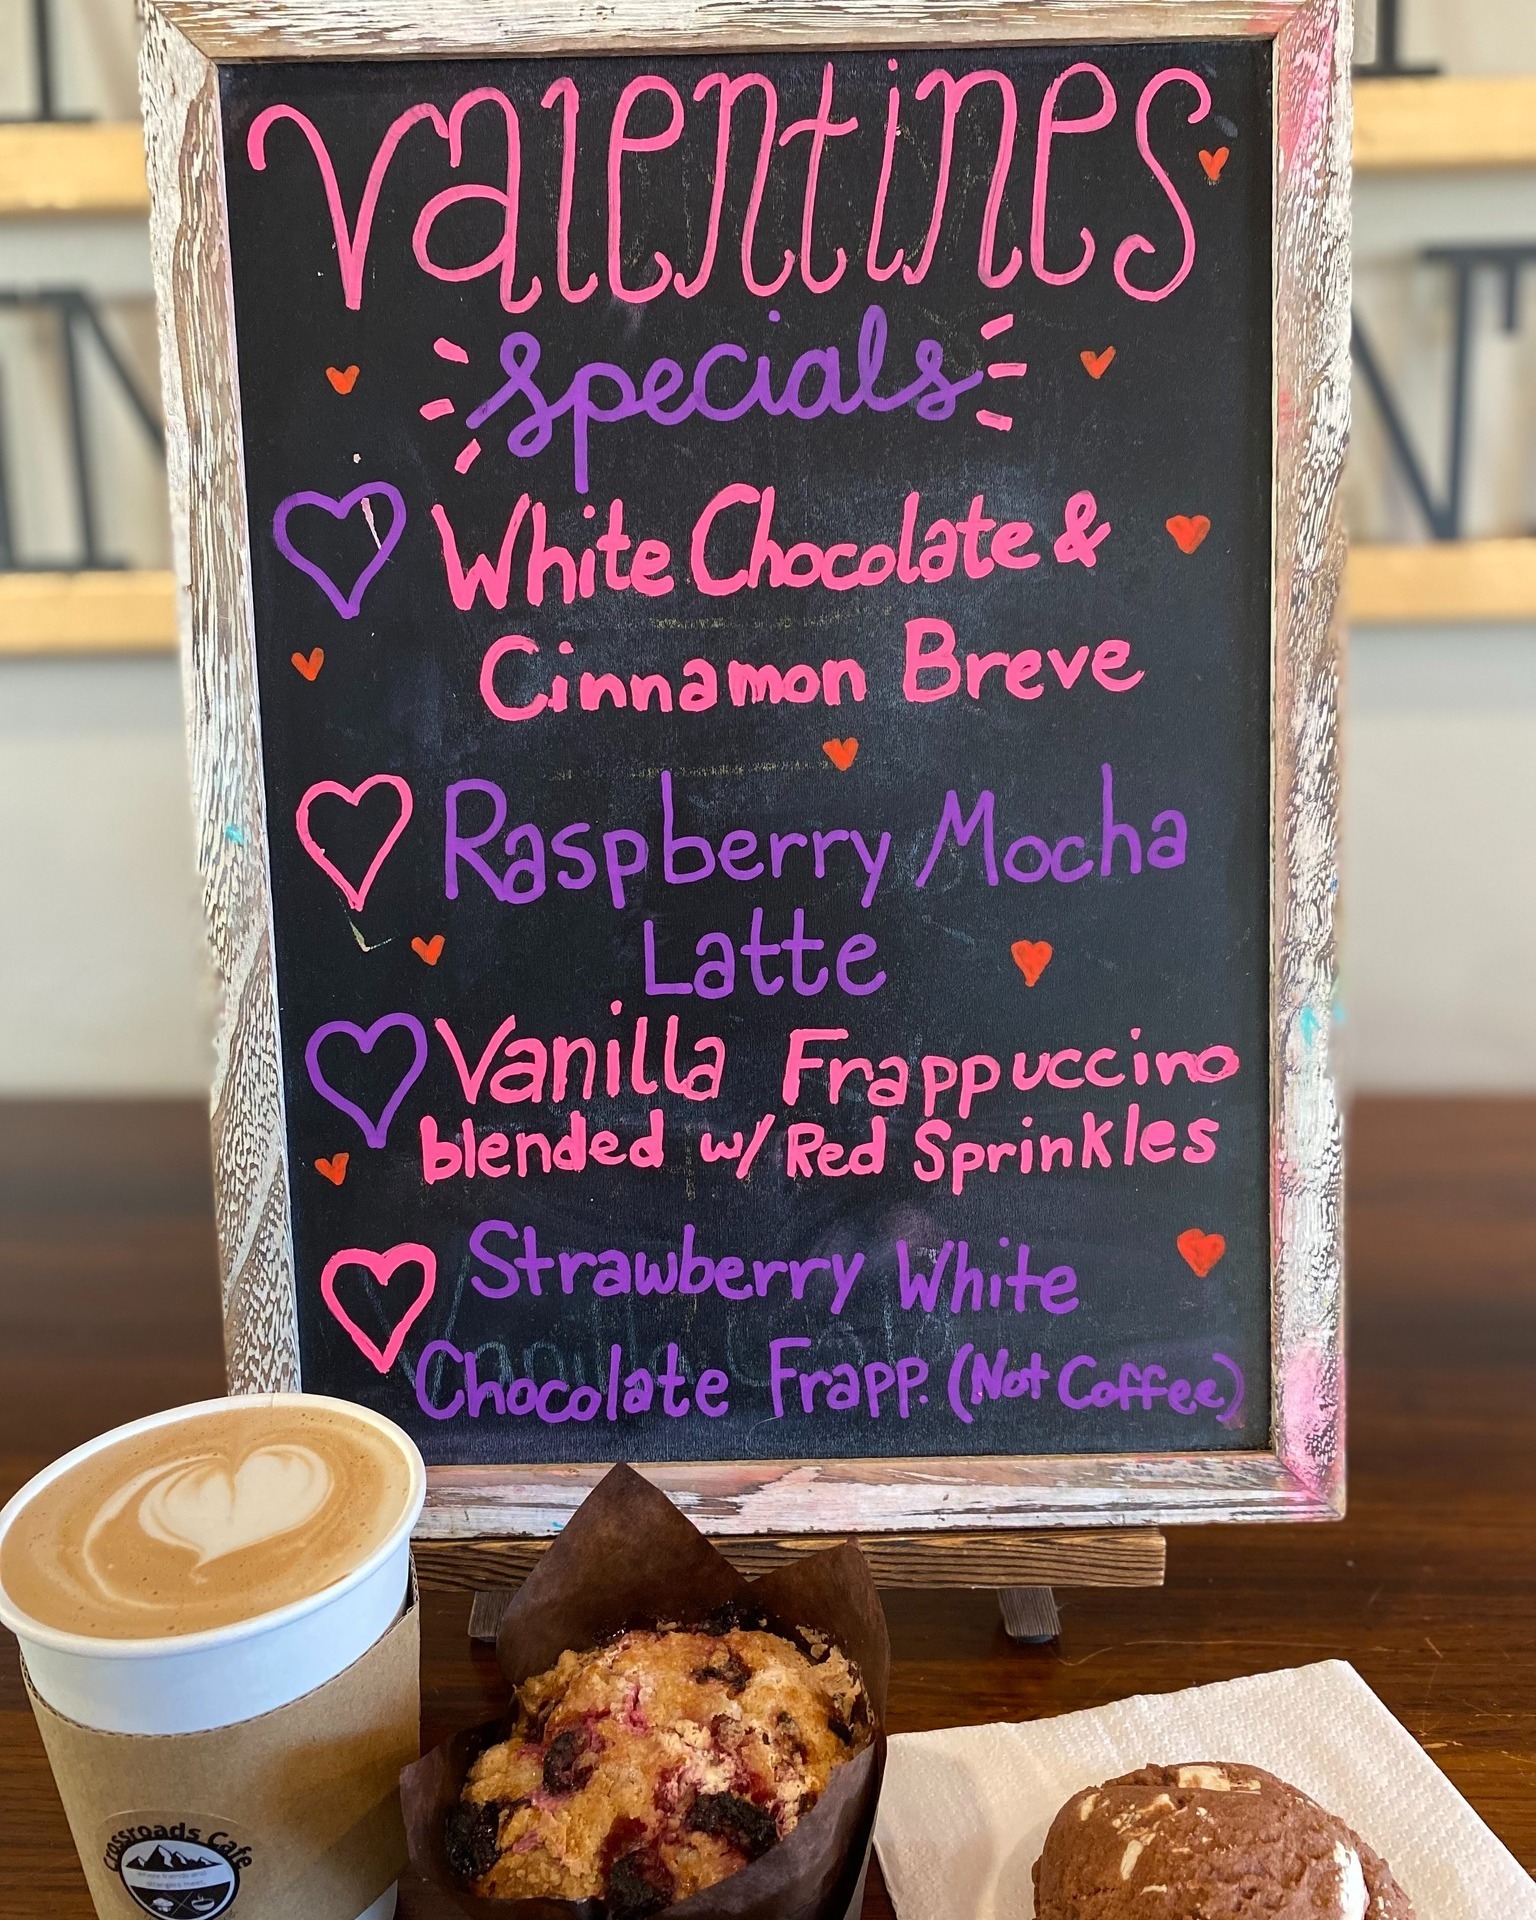 Valentines
Specials
White Chocolate &
Cinnamon Breve
Raspberry Mocha
Latte
Vanilla Frappuccino
blended w/ Red Sprinkles
Strawberry White
Chocolate Frapp. (Not Coffee)
Crossroads Cafe
where friends and
strangers meet.